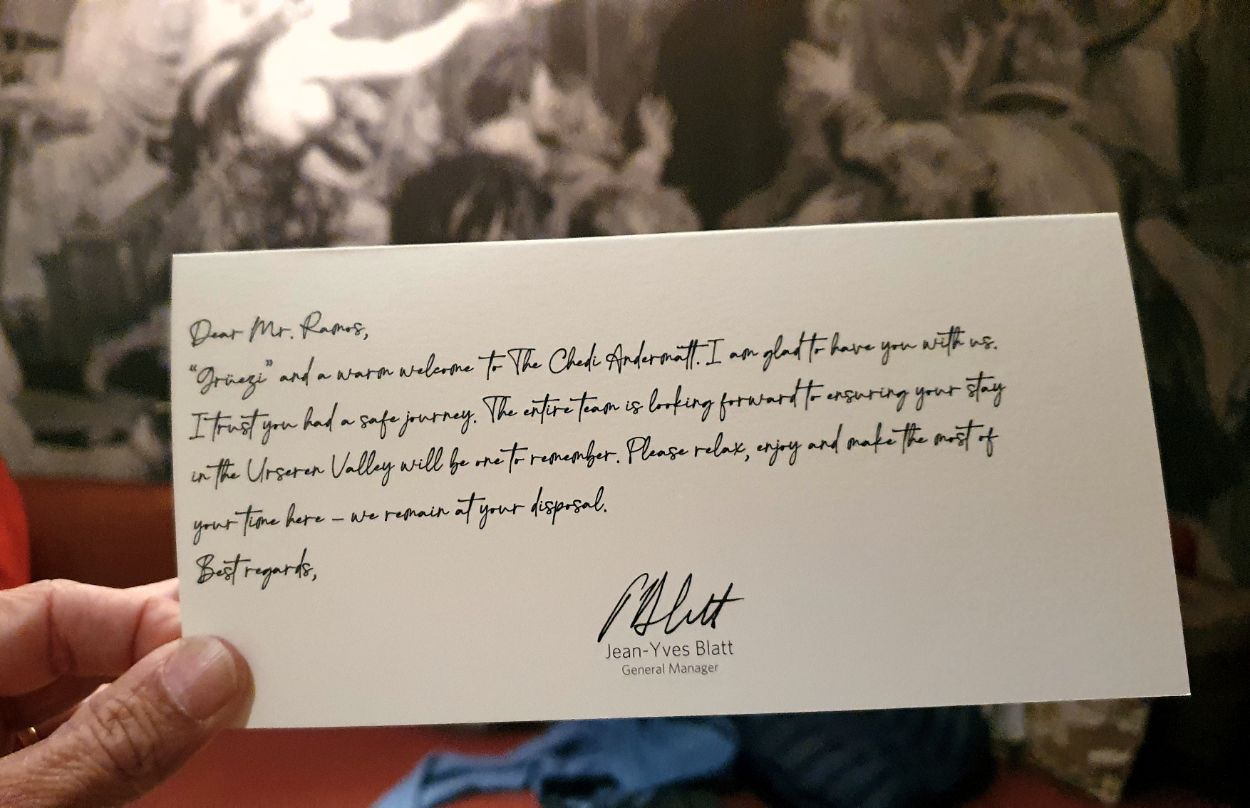 Dear Mr. Ramos,
"Grüezi" and a warm welcome to The Chedi Andermatt. I am glad to have you with us.
I trust you had a safe journey. The entire team is looking forward to ensuring your stay
in the Urseren Valley will be one to remember. Please relax, enjoy and make the most of
your time here – we remain at your disposal.
Best regards,
Jean-Yves Blatt
General Manager